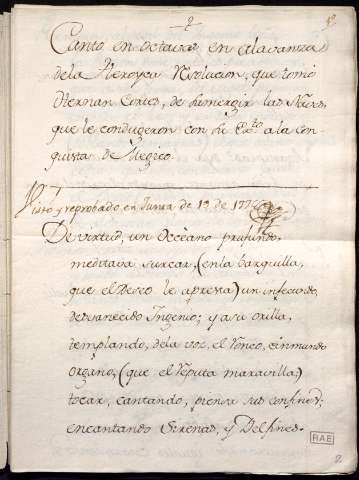 2
Canto en octavas en alavanza
dela Heroyca Resolucion, que tomó
Hernan Cortes, de sumergir las Naves,
que le condugeron con su Exto. ala con
quista de Megico.
Visto y reprobado en Junta de 13 de 1774
De virtud, un Occèano profundo,
meditava surcar, (en la barquilla,
que el Deseo le apresta) un infecundo,
desvanecido Ingenio; y a su orilla,
templando, dela voz, el ronco, è inmundo
organo, (que el reputa maravilla,)
tocar, cantando, piensa sus confines;
encantando Sirenas, y Delfines.
RAE
2